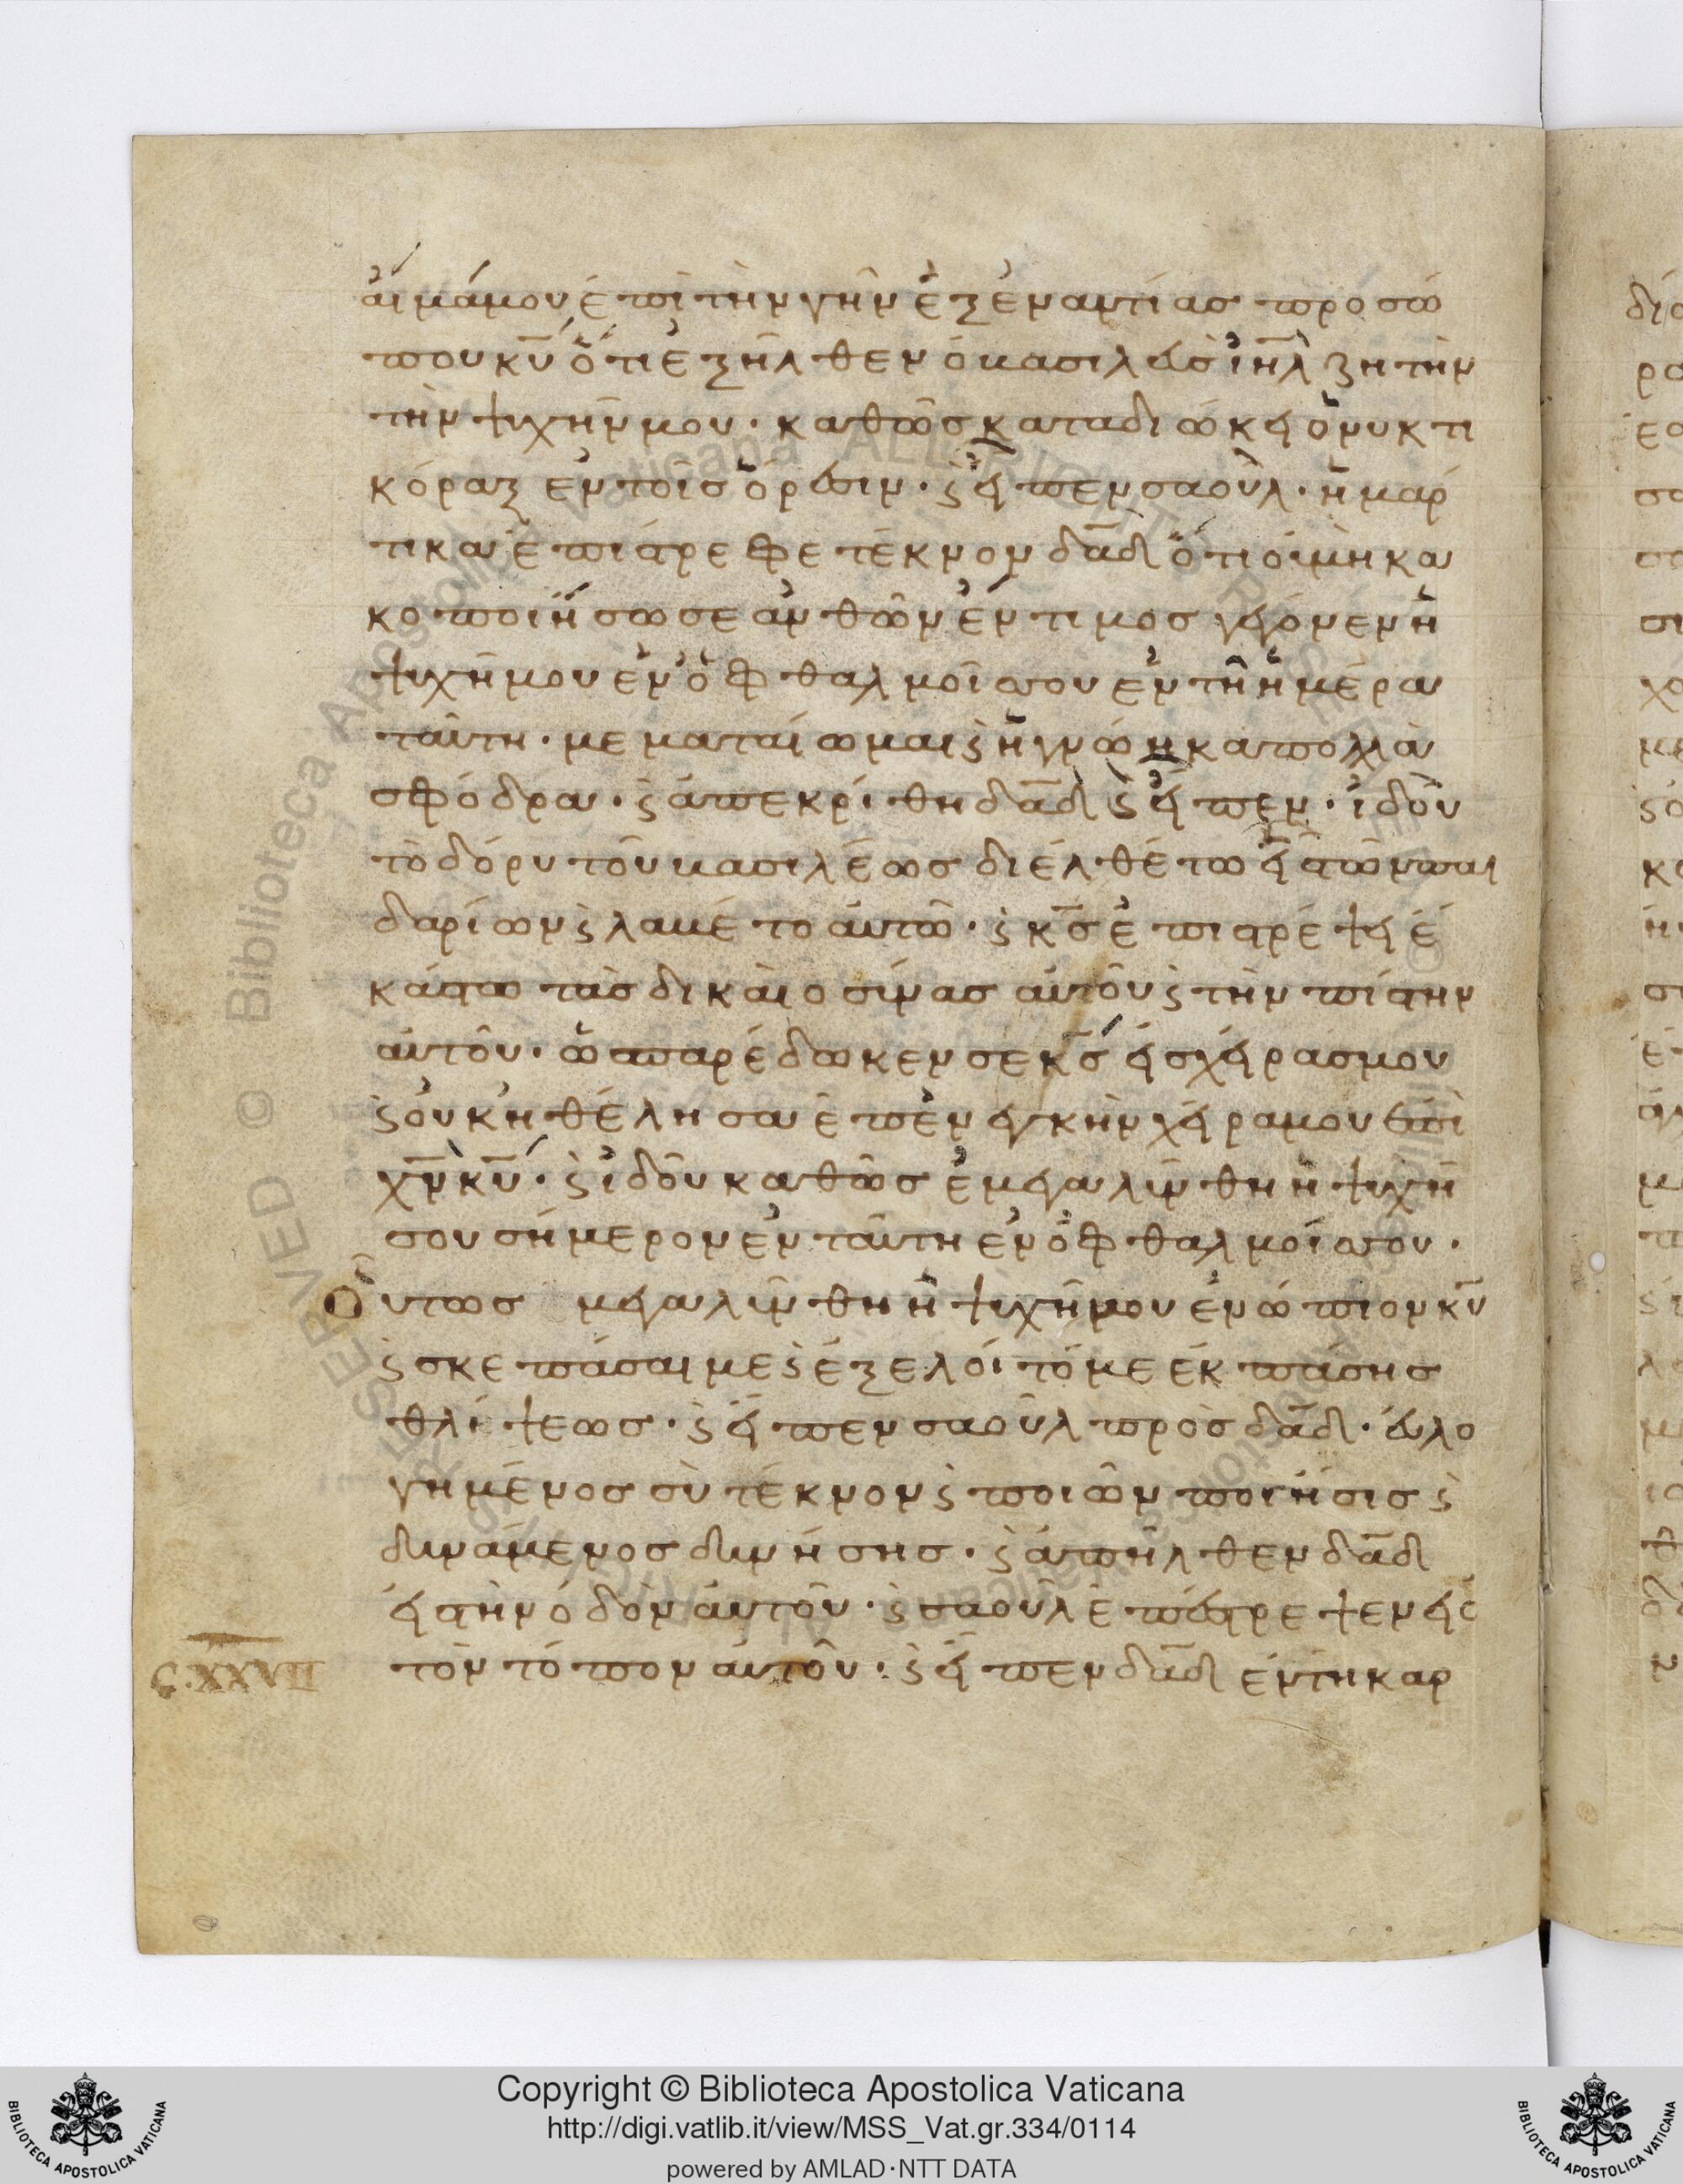 αἷμά μου ἐπὶ τὴν γῆν ἐξ ἐναντίας προσώ
που κ̅υ̅ ὅτι ἐξῆλθεν ὁ βασιλεὺς ἰη̅λ̅ ζητὴν
τὴν ψυχήν μου · καθὼς καταδιώκει ὁ νυκτι
κόραξ ἐν τοῖς ὄρεσιν · ϛ εἶπεν σαούλ · ἡμάρ
τικα ἐπίστρεφε τέκνον δα̅δ̅ ὅτι οὐ μὴ κα
κοποιήσω σε ἀνθῶν ἔντιμος γέγονεν ἡ
ψυχή μου ἐν ὀφθαλμοῖς σου ἐν τῆ ἡμέρα
ταύτη · μεματαίωμαι ϛ ἠγνώηκα πολλὰ
σφόδρα · ϛ ἀπεκρίθη δα̅δ̅ ϛ εἶπεν · ἰδοὺ
τὸ δόρυ τοῦ βασιλέως διελθέτω εἷς τῶν παι
δαρίων ϛ λαβέτο αὐτῶ · ϛ κ̅σ̅ ἐπιστρέψει ἑ
κάστω τὰς δικαιοσύνας αὐτοῦ ϛ τὴν πίστην
αὐτοῦ · ὡς παρέδωκεν σε κ̅σ̅ εἰς χεῖρας μου
ϛ οὐκ ἠθέλησα ἐπενεγκὴν χεῖρα μου ἐπὶ
χ̅ν̅ κ̅υ̅ · ϛ ἰδοὺ καθὼς ἐμεγαλύνθη ἡ ψυχή
σου σήμερον ἐν ταύτη ἐν ὀφθαλμοῖς σου ·
Οὕτως μεγαλύνθη ἡ ψυχή μου ἐνώπιον κ̅υ̅
ϛ σκεπάσαι με ϛ ἐξελοῖτό με ἐκ πάσης
θλίψεως · ϛ εἶπεν σαοὺλ πρὸς δα̅δ̅ · εὐλο
γημένος σὺ τέκνον ϛ ποιῶν ποιήσις ϛ
δυνάμενος δυνήσης · ϛ ἀπῆλθεν δα̅δ̅
εἰς τὴν ὁδὸν αὐτοῦ · ϛ σαοὺλ ἐπέστρεψεν εἰς
τὸν τόπον αὐτοῦ · ϛ εἶπεν δα̅δ̅ ἐν τῆ καρ
C. XXVII
Copyright © Biblioteca Apostolica Vaticana
http://digi.vatlib.it/view/MSS_Vat.gr.334/0114
powered by AMLAD·NTT DATA
BIBLIOTECA APOSTOLICA VATICANA
BIBLIOTECA APOSTOLICA VATICANA